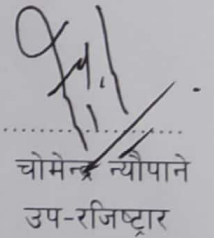 चोमेन्द्र न्यौपाने
उप-रजिष्ट्रार